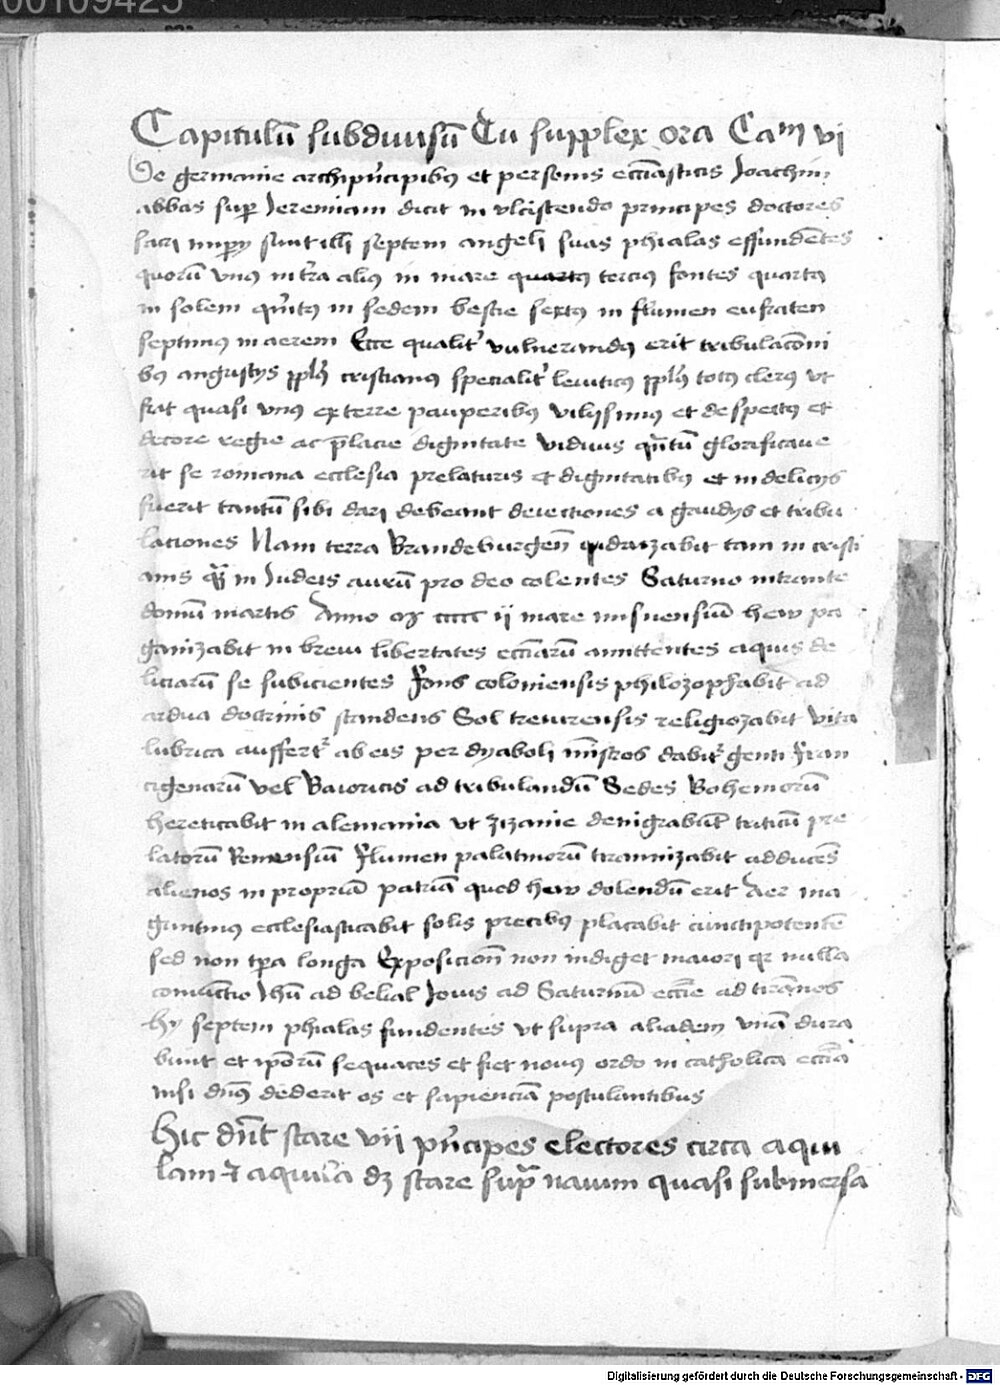 00109425
Capitulū subdiuisū Tu supplex ora Cam vi
De germanie archipn̄cipibꝫ et personis ecciasticis Joachim
abbas sup Jeremiam dicit in vlcistendo principes doctores
sacri imperij sunt illi septem angeli suas phialas effundētes
quorū vnꝫ in tr̄a aliꝫ in mare quartꝫ terciꝫ fontes quartꝫ
in solem qn̄tꝫ in sedem bestie sextꝫ in flumen eufraten
septimꝫ in aerem Ecce qualitr vulnerandꝫ erit tribulacōni
bꝫ angustijs pplꝫ cristianꝫ specialitr leuiticꝫ pplꝫ totꝫ clerꝫ vt
fiat quasi vnꝫ ex terre pauperibꝫ vilissimꝫ et despectꝫ et
decore regie ac p̄lacie dignitate vidiuus qn̄tū glorificaue
rit se romana ecclesia prelaturis et dignitatibꝫ et in delicijs
fuerit tantū sibi dari debeant deiectiones a gaudijs et tribu
laciones Nam terra Brandeburgen̄ qdraizabit tam in cristi
anis qꝫ in Judeis aurū pro deo colentes Saturno intrante
domū martis Anno ij mare misnensiū hew pa
ganizabit in breui libertates eccīarū amittentes aquis de
liciarū se subicientes Fons coloniensis philozophabit ad
ardua doctrinis standens Sol treuirensis religiozabit vita
lubrica auffertr ab eis per dyaboli mīstros dabitr genti Fran
cigenarū vel Baioricis ad tribulandū Sedes Bohemorū
hereticabit in alemania vt zizanie denigrabūt triticū pre
latorū Remensiū Flumen palatinorū tirannizabit adducēs
alienos in propriā patriā quod hew dolendū erit Aer ma
guntinꝫ ecclesiasticabit solis precibꝫ placabit cunctipotentē
sed non tpa longa Exposicionē non indiget maiori qr nulla
coniunctio Jhū ad belial Jouis ad Saturnū eccīe ad tirānos
hij septem phialas fundentes vt supra aliadem vnā dura
bunt et ipōrū sequaces et fiet nouꝫ ordo in catholica eccīa
nisi dn̄ꝫ dederit os et sapienciā postulantibus
Hic dn̄t stare vii pn̄cipes electores circa aqui
lam et aquila dꝫ stare supra nauim quasi submersa
Digitalisierung gefördert durch die Deutsche Forschungsgemeinschaft - DFG